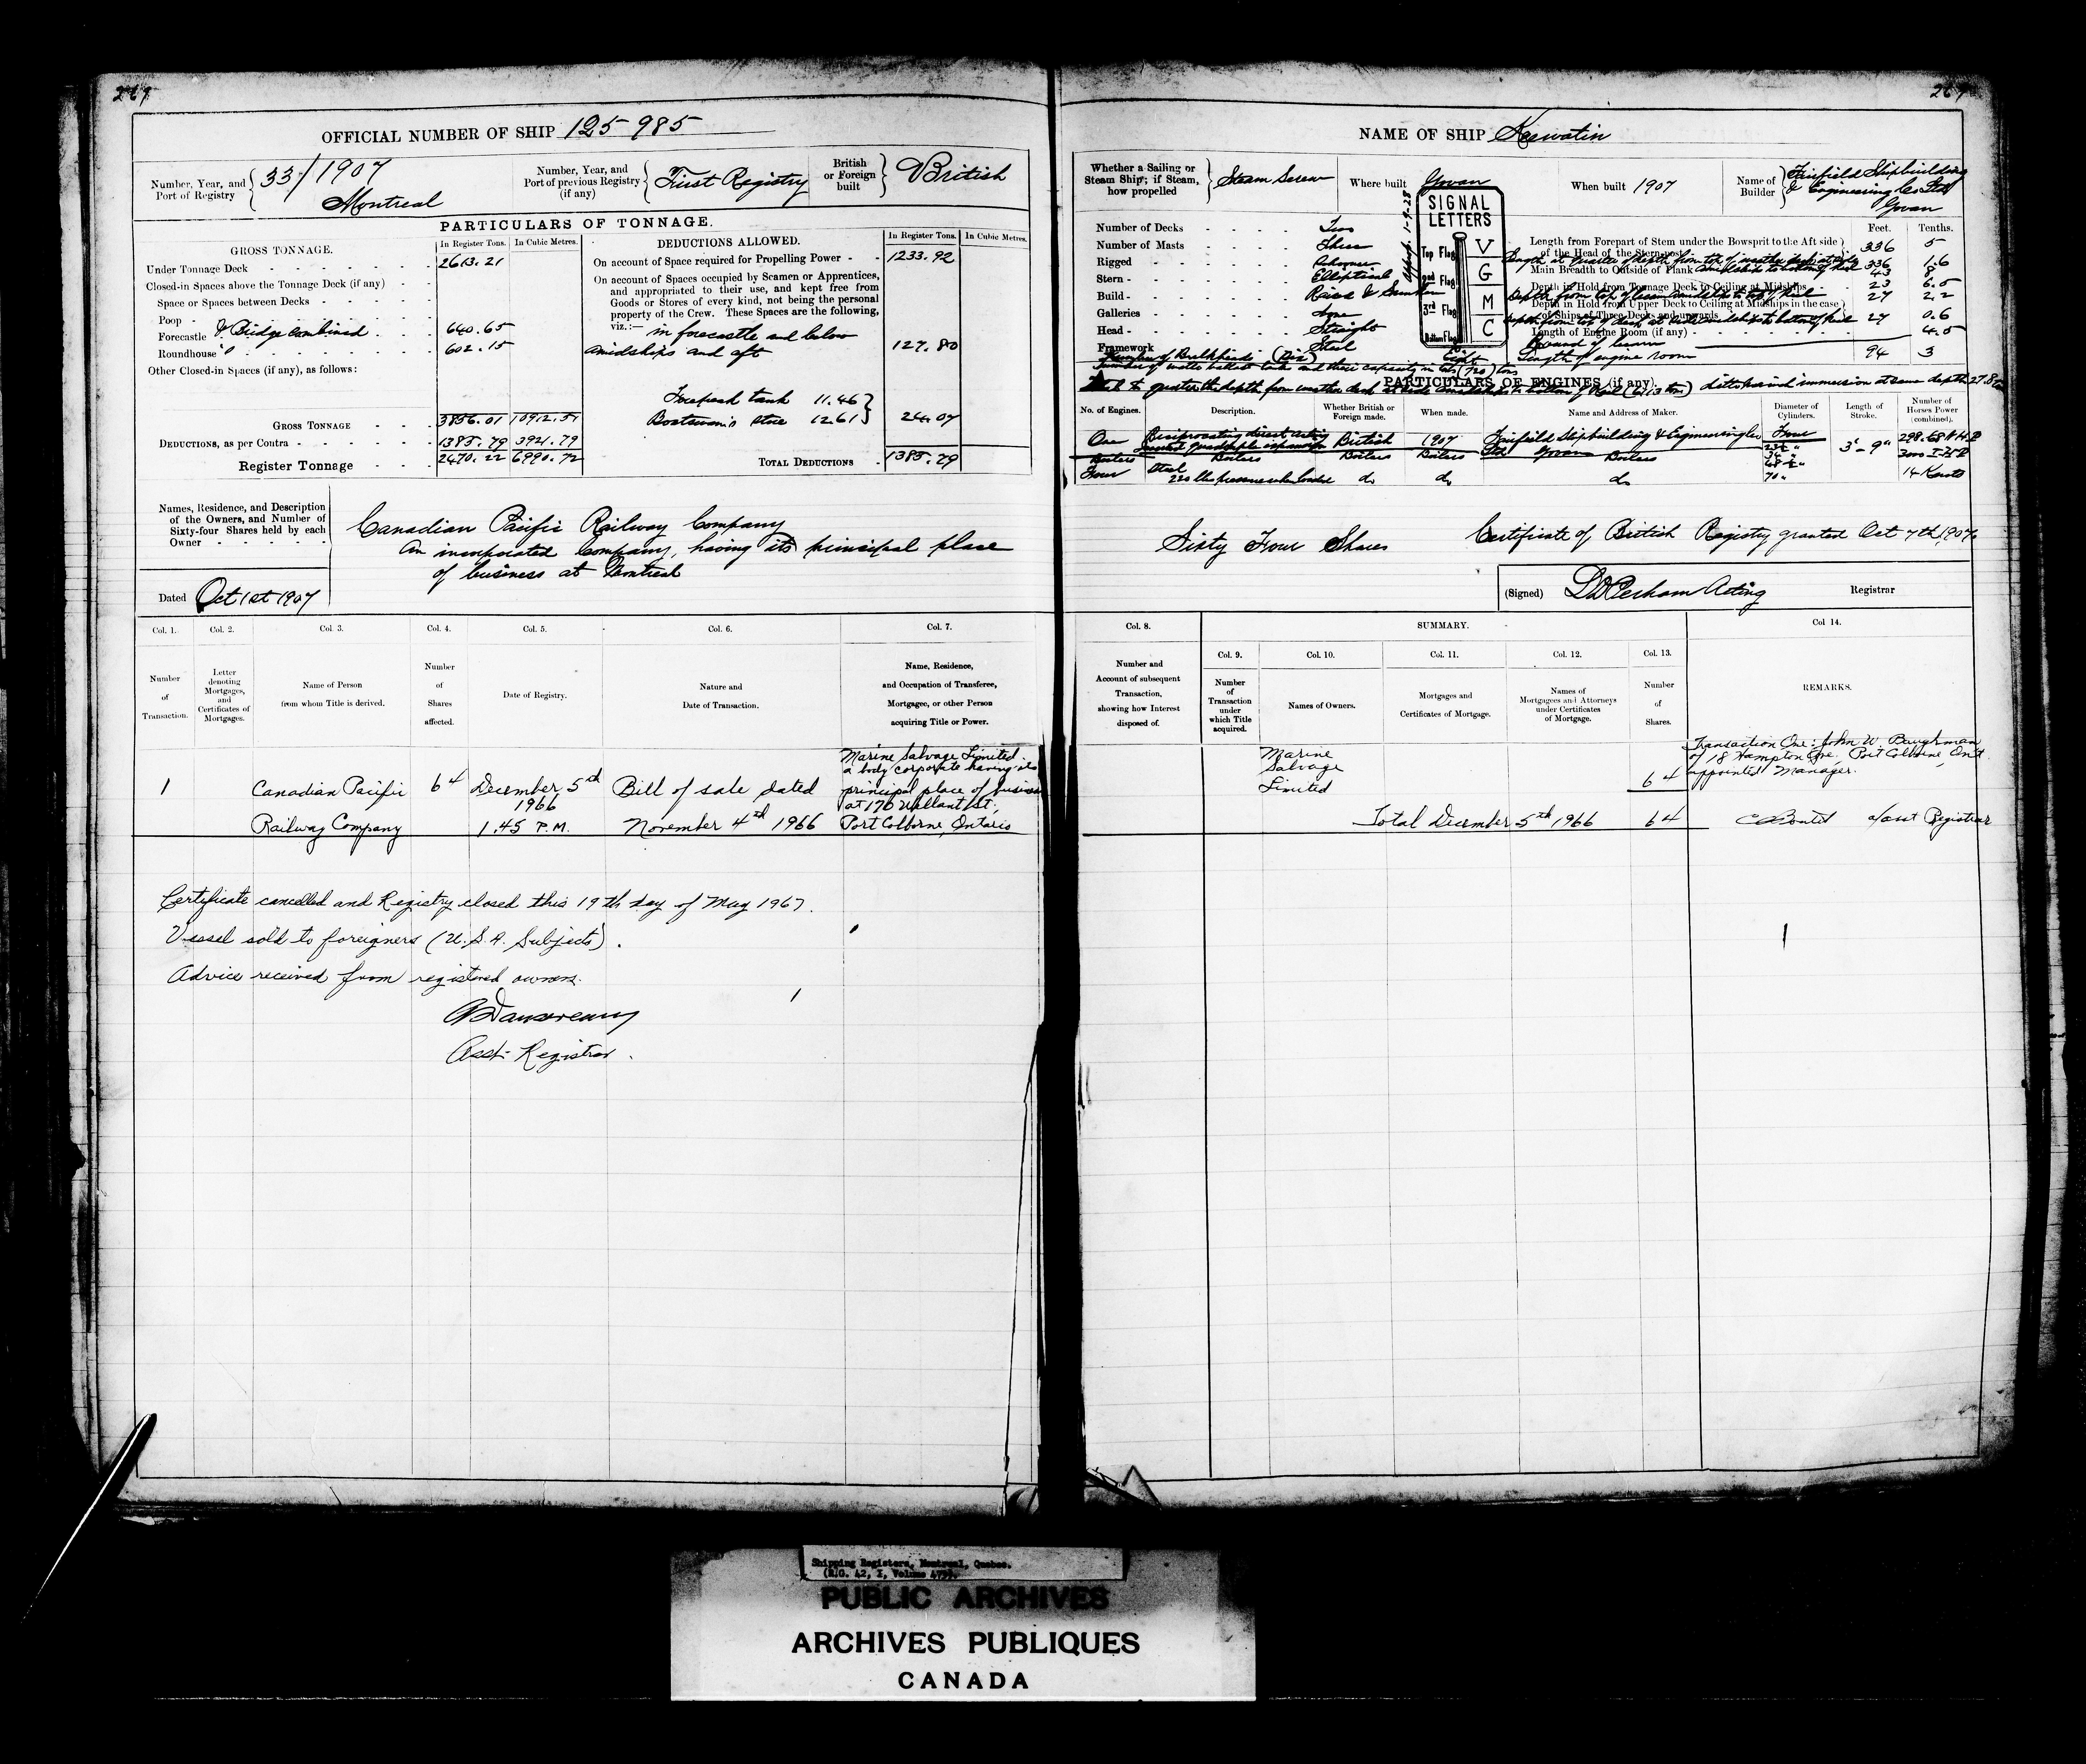 269
OFFICIAL NUMBER OF SHIP 125-985
Number, Year, and Port of Registry 33/1907 Montreal
Number, Year, and Port of previous Registry (if any) First Registry
British or Foreign built British
PARTICULARS OF TONNAGE.
GROSS TONNAGE.
In Register Tons. In Cubic Metres.
Under Tonnage Deck 2613.21
Closed-in Spaces above the Tonnage Deck (if any)
Space or Spaces between Decks
Poop
Forecastle & Bridge combined 640.65
Roundhouse 602.15
Other Closed-in Spaces (if any), as follows:
GROSS TONNAGE 3856.01 10912.51
DEDUCTIONS, as per Contra 1385.79 3921.79
Register Tonnage 2470.22 6990.72
DEDUCTIONS ALLOWED.
In Register Tons. In Cubic Metres.
On account of Space required for Propelling Power 1233.92
On account of Spaces occupied by Seamen or Apprentices,
and appropriated to their use, and kept free from
Goods or Stores of every kind, not being the personal
property of the Crew. These Spaces are the following,
viz.:— in forecastle and below
amidships and aft 127.80
Forepeak tank 11.46
Boatswain's Store 12.61 24.07
TOTAL DEDUCTIONS 1385.79
Names, Residence, and Description
of the Owners, and Number of
Sixty-four Shares held by each
Owner
Canadian Pacific Railway Company
An incorporated Company, having its principal place
of business at Montreal
Dated Oct 1st 1907
Col. 1. Col. 2. Col. 3. Col. 4. Col. 5. Col. 6. Col. 7.
Number of Transaction.
Letter denoting Mortgages, and Certificates of Mortgages.
Name of Person from whom Title is derived.
Number of Shares affected.
Date of Registry.
Nature and Date of Transaction.
Name, Residence, and Occupation of Transferee, Mortgagee, or other Person acquiring Title or Power.
1 Canadian Pacific Railway Company
64
December 5th 1966 1.45 P.M.
Bill of sale dated November 4th 1966
Marine Salvage Limited
a body corporate having its
principal place of business
at 170 Wellant St.,
Port Colborne, Ontario
Certificate cancelled and Registry closed this 19th day of May 1967.
Vessel sold to foreigners (U.S.A. Subjects).
Advice received from registered owners.
Asst. Registrar.
269
NAME OF SHIP Keewatin
Whether a Sailing or Steam Ship; if Steam, how propelled Steam Screw
Where built Govan
When built 1907
Name of Builder Fairfield Shipbuilding & Engineering Co Ltd Govan
Number of Decks Two
Number of Masts Three
Rigged Schooner
Stern Elliptical
Build
Galleries None
Head Straight
Framework Steel
SIGNAL
LETTERS
Top Flag V
2nd Flag G
3rd Flag M
Bottom Flag C
Feet. Tenths.
Length from Forepart of Stem under the Bowsprit to the Aft side
of the Head of the Stern-post 336 5
Length at quarter of depth from top of weather deck at side 336 1.6
Main Breadth to Outside of Plank 43 8
Depth in Hold from Tonnage Deck to Ceiling at Midships 23 6.5
Depth in Hold from Upper Deck to Ceiling at Midships in the case
of Ships of Three Decks and upwards
27 2.2
27 0.6
Length of Engine Room (if any)
Round of beam 4.5
Length of engine room 94 3
Number of Bulkheads (Six)
PARTICULARS OF ENGINES (if any).
No. of Engines. Description. Whether British or Foreign made. When made. Name and Address of Maker. Diameter of Cylinders. Length of Stroke. Number of Horses Power (combined).
One Reciprocating direct acting
British 1907 Fairfield Shipbuilding & Engineering Co Ltd Govan Four
3' - 9"
298.68 N.H.P.
3000 I.H.P.
14 Knots
Boilers Boilers Boilers Boilers Boilers
Four Steel do do do
70"
Sixty Four Shares
Certificate of British Registry granted Oct 7th 1907
(Signed) Acting Registrar
Col. 8.
SUMMARY.
Col. 9. Col. 10. Col. 11. Col. 12. Col. 13.
Col 14.
Number and Account of subsequent Transaction, showing how Interest disposed of.
Number of Transaction under which Title acquired.
Names of Owners.
Mortgages and Certificates of Mortgage.
Names of Mortgagees and Attorneys under Certificates of Mortgage.
Number of Shares.
REMARKS.
Marine
Salvage
Limited
64
Transaction One: John W. Baughman
of 18 Hampton Ave., Port Colborne, Ont.
appointed Manager.
Total December 5th 1966 64
Asst Registrar
Shipping Registers, Montreal, Quebec.
PUBLIC ARCHIVES
ARCHIVES PUBLIQUES
CANADA